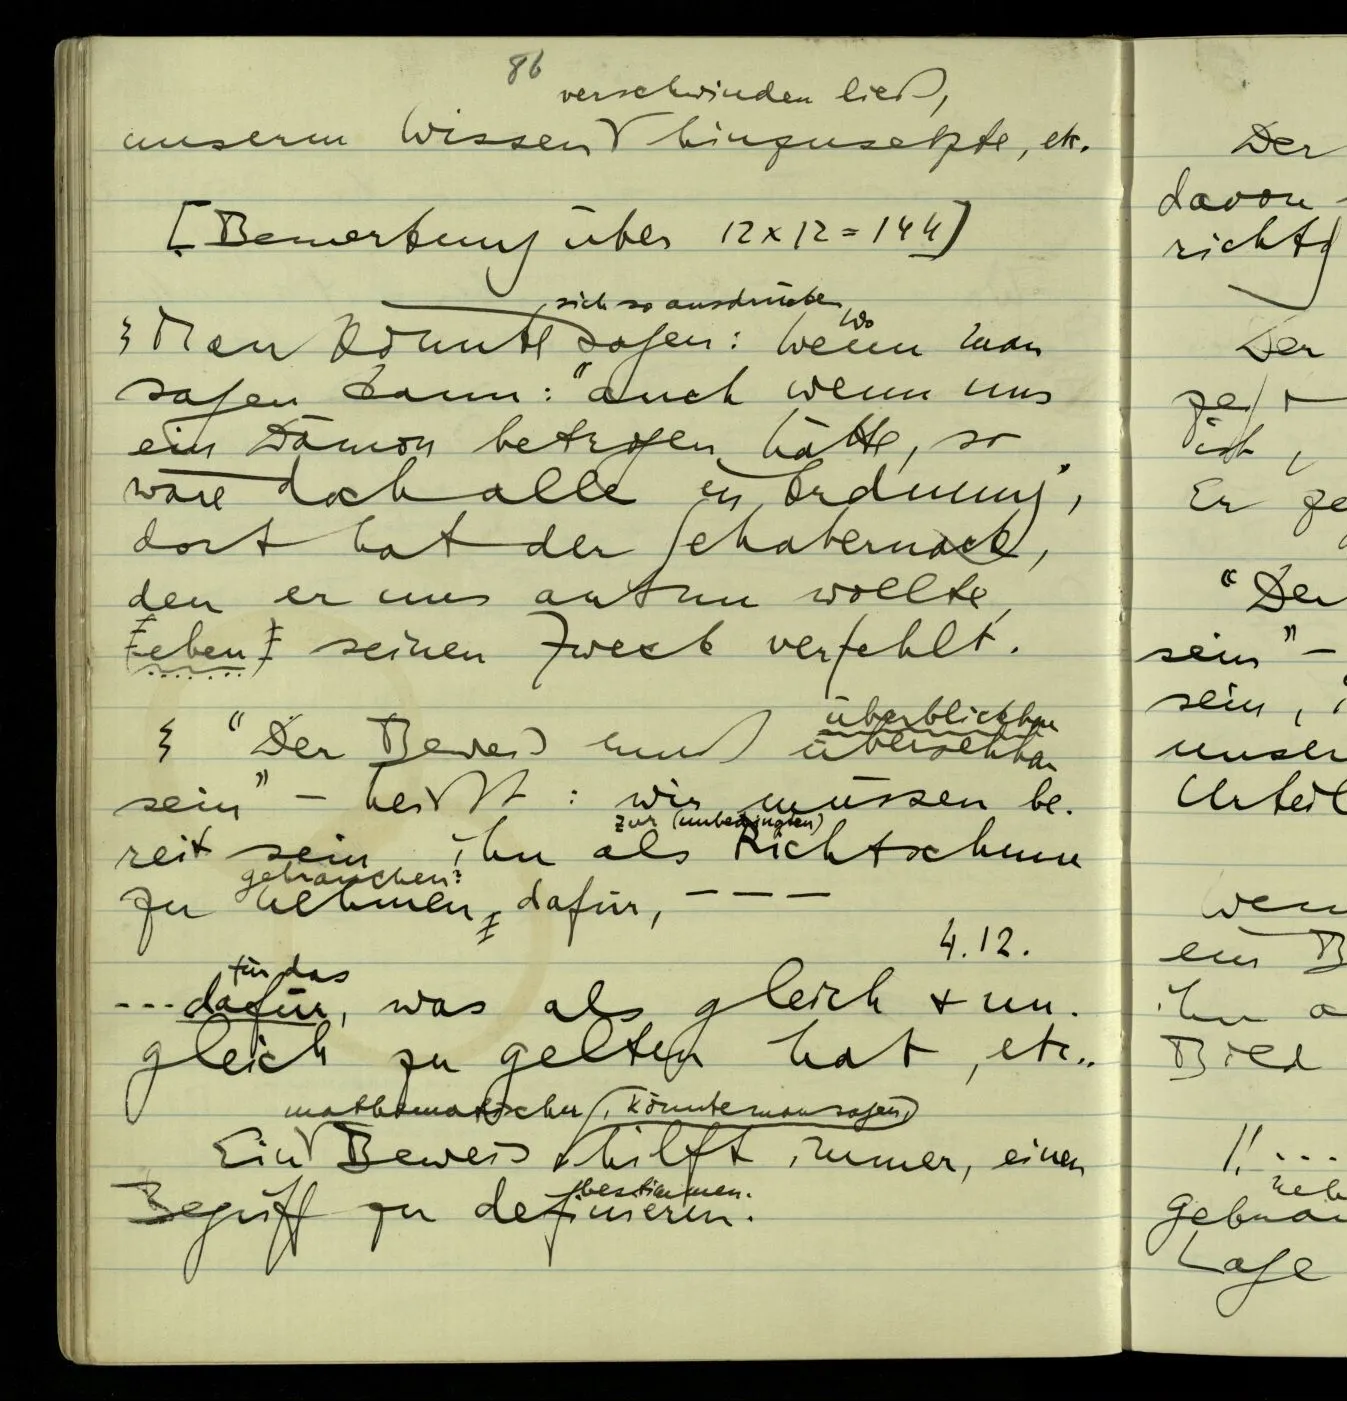 86
verschwinden ließ,
unserm Wissen hinzusetzte, etc.
[Bemerkung über 12×12=144]
sich so ausdrücken
Man könnte sagen: wenn wo man
sagen kann: "auch wenn uns
ein Dämon betrogen hätte, so
wäre doch alle in Ordnung",
dort hat der Schabernack,
den er uns antun wollte,
eben seinen Zweck verfehlt.
überblickbar
"Der Beweis muß übersehbar
sein" – heißt: wir müssen be-
zur (unbedingten)
reit sein, ihn als Richtschnur
gebrauchen:
zu nehmen, dafür, – – –
4.12.
für das
---dafür, was als gleich + un-
gleich zu gelten hat, etc..
mathematischer, könnte man sagen,
Ein Beweis hilft immer, einen
bestimmen.
Begriff zu definieren.
Der
davon
richtig
Der
ist,
Er
"Der
sein" –
sein,
unser
Urteil
ein B
ihn
Bild
!! ...
gebrau
Lage